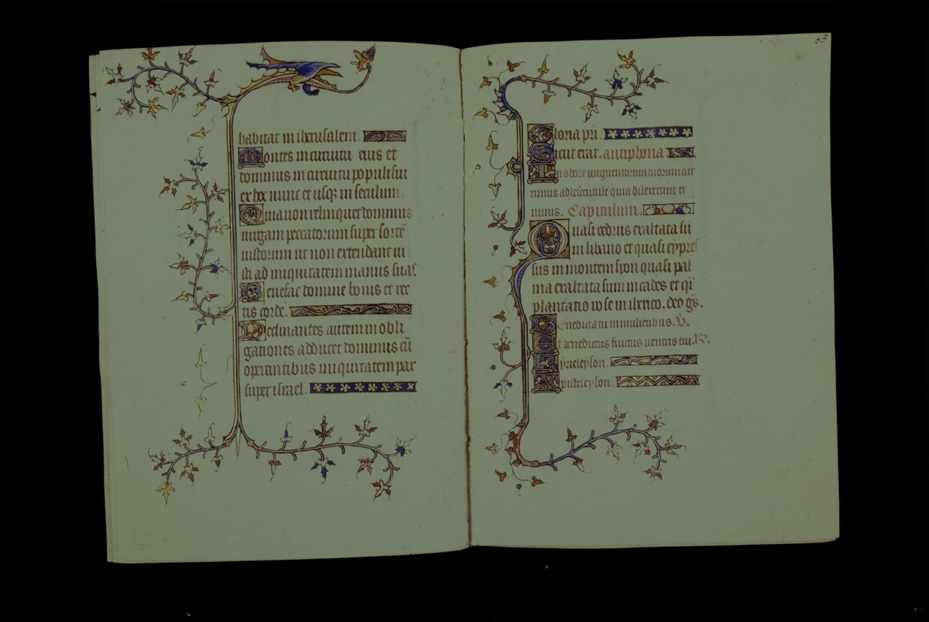 habitat in iherusalem.
Montes in circuitu eius et
dominus in circuitu populi sui
ex hoc nunc et usqz in seculum.
Quia non relinquet dominus
uirgam peccatorum super sortē
iustorum ut non extendant iu
sti ad iniquitatem manus suas
Benefac domine bonis et rec
tis corde.
Declinantes autem in obli
gationes adducet dominus cū
operantibus iniquitatem pax
super israel.
Gloria pri.
Sicut erat. antiphona
In odore unguentorum tuorum cur
rimus adolescentule quia dilexerunt te
nimis. Capitulum.
Quasi cedrus exaltata sū
in libano et quasi cypres
sus in montem syon quasi pal
ma exaltata sum in cades et qī
plantatio rose in iherico. deo gs.
Benedicta tu in mulieribus. V.
Et benedictus fructus uentris tui. R.
Kyrieleyson.
Xpisteleyson.